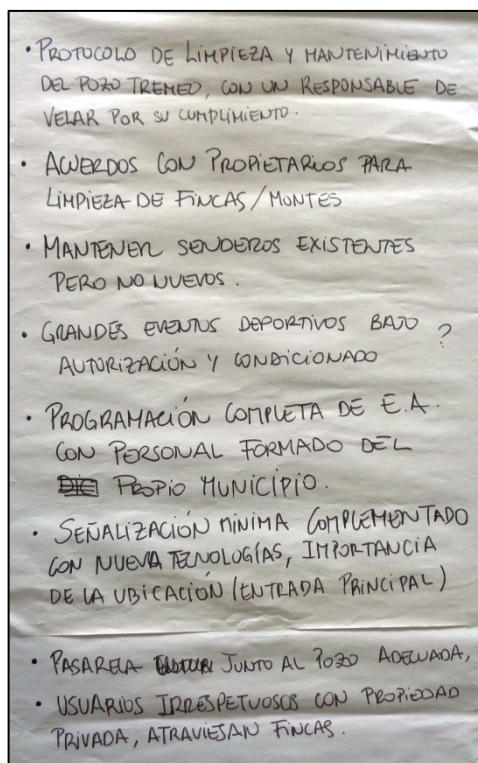 • PROTOCOLO DE LIMPIEZA Y MANTENIMIENTO
DEL POZO TREMEO, CON UN RESPONSABLE DE
VELAR POR SU CUMPLIMIENTO.
• ACUERDOS CON PROPIETARIOS PARA
LIMPIEZA DE FINCAS/MONTES
• MANTENER SENDEROS EXISTENTES
PERO NO NUEVOS.
• GRANDES EVENTOS DEPORTIVOS BAJO ?
AUTORIZACIÓN Y CONDICIONADO
• PROGRAMACIÓN COMPLETA DE E.A.
CON PERSONAL FORMADO DEL
PROPIO MUNICIPIO.
• SEÑALIZACIÓN MÍNIMA COMPLEMENTADO
CON NUEVA TECNOLOGÍAS, IMPORTANCIA
DE LA UBICACIÓN (ENTRADA PRINCIPAL)
• PASARELA JUNTO AL POZO ADECUADA,
• USUARIOS IRRESPETUOSOS CON PROPIEDAD
PRIVADA, ATRAVIESAN FINCAS.